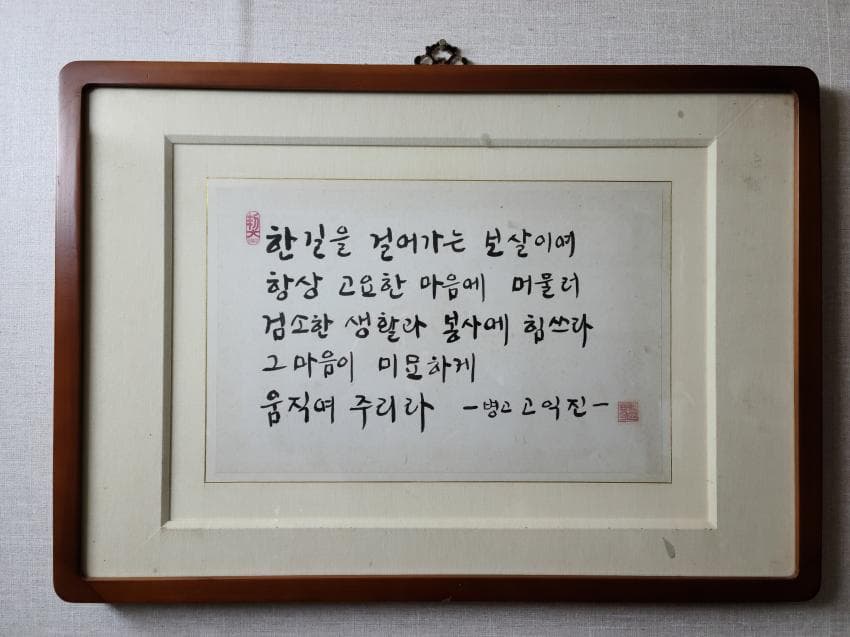 한길을 걸어가는 보살이여
항상 고요한 마음에 머물러
검소한 생활과 봉사에 힘쓰라
그 마음이 미묘하게
움직여 주리라 -병고 고익진-